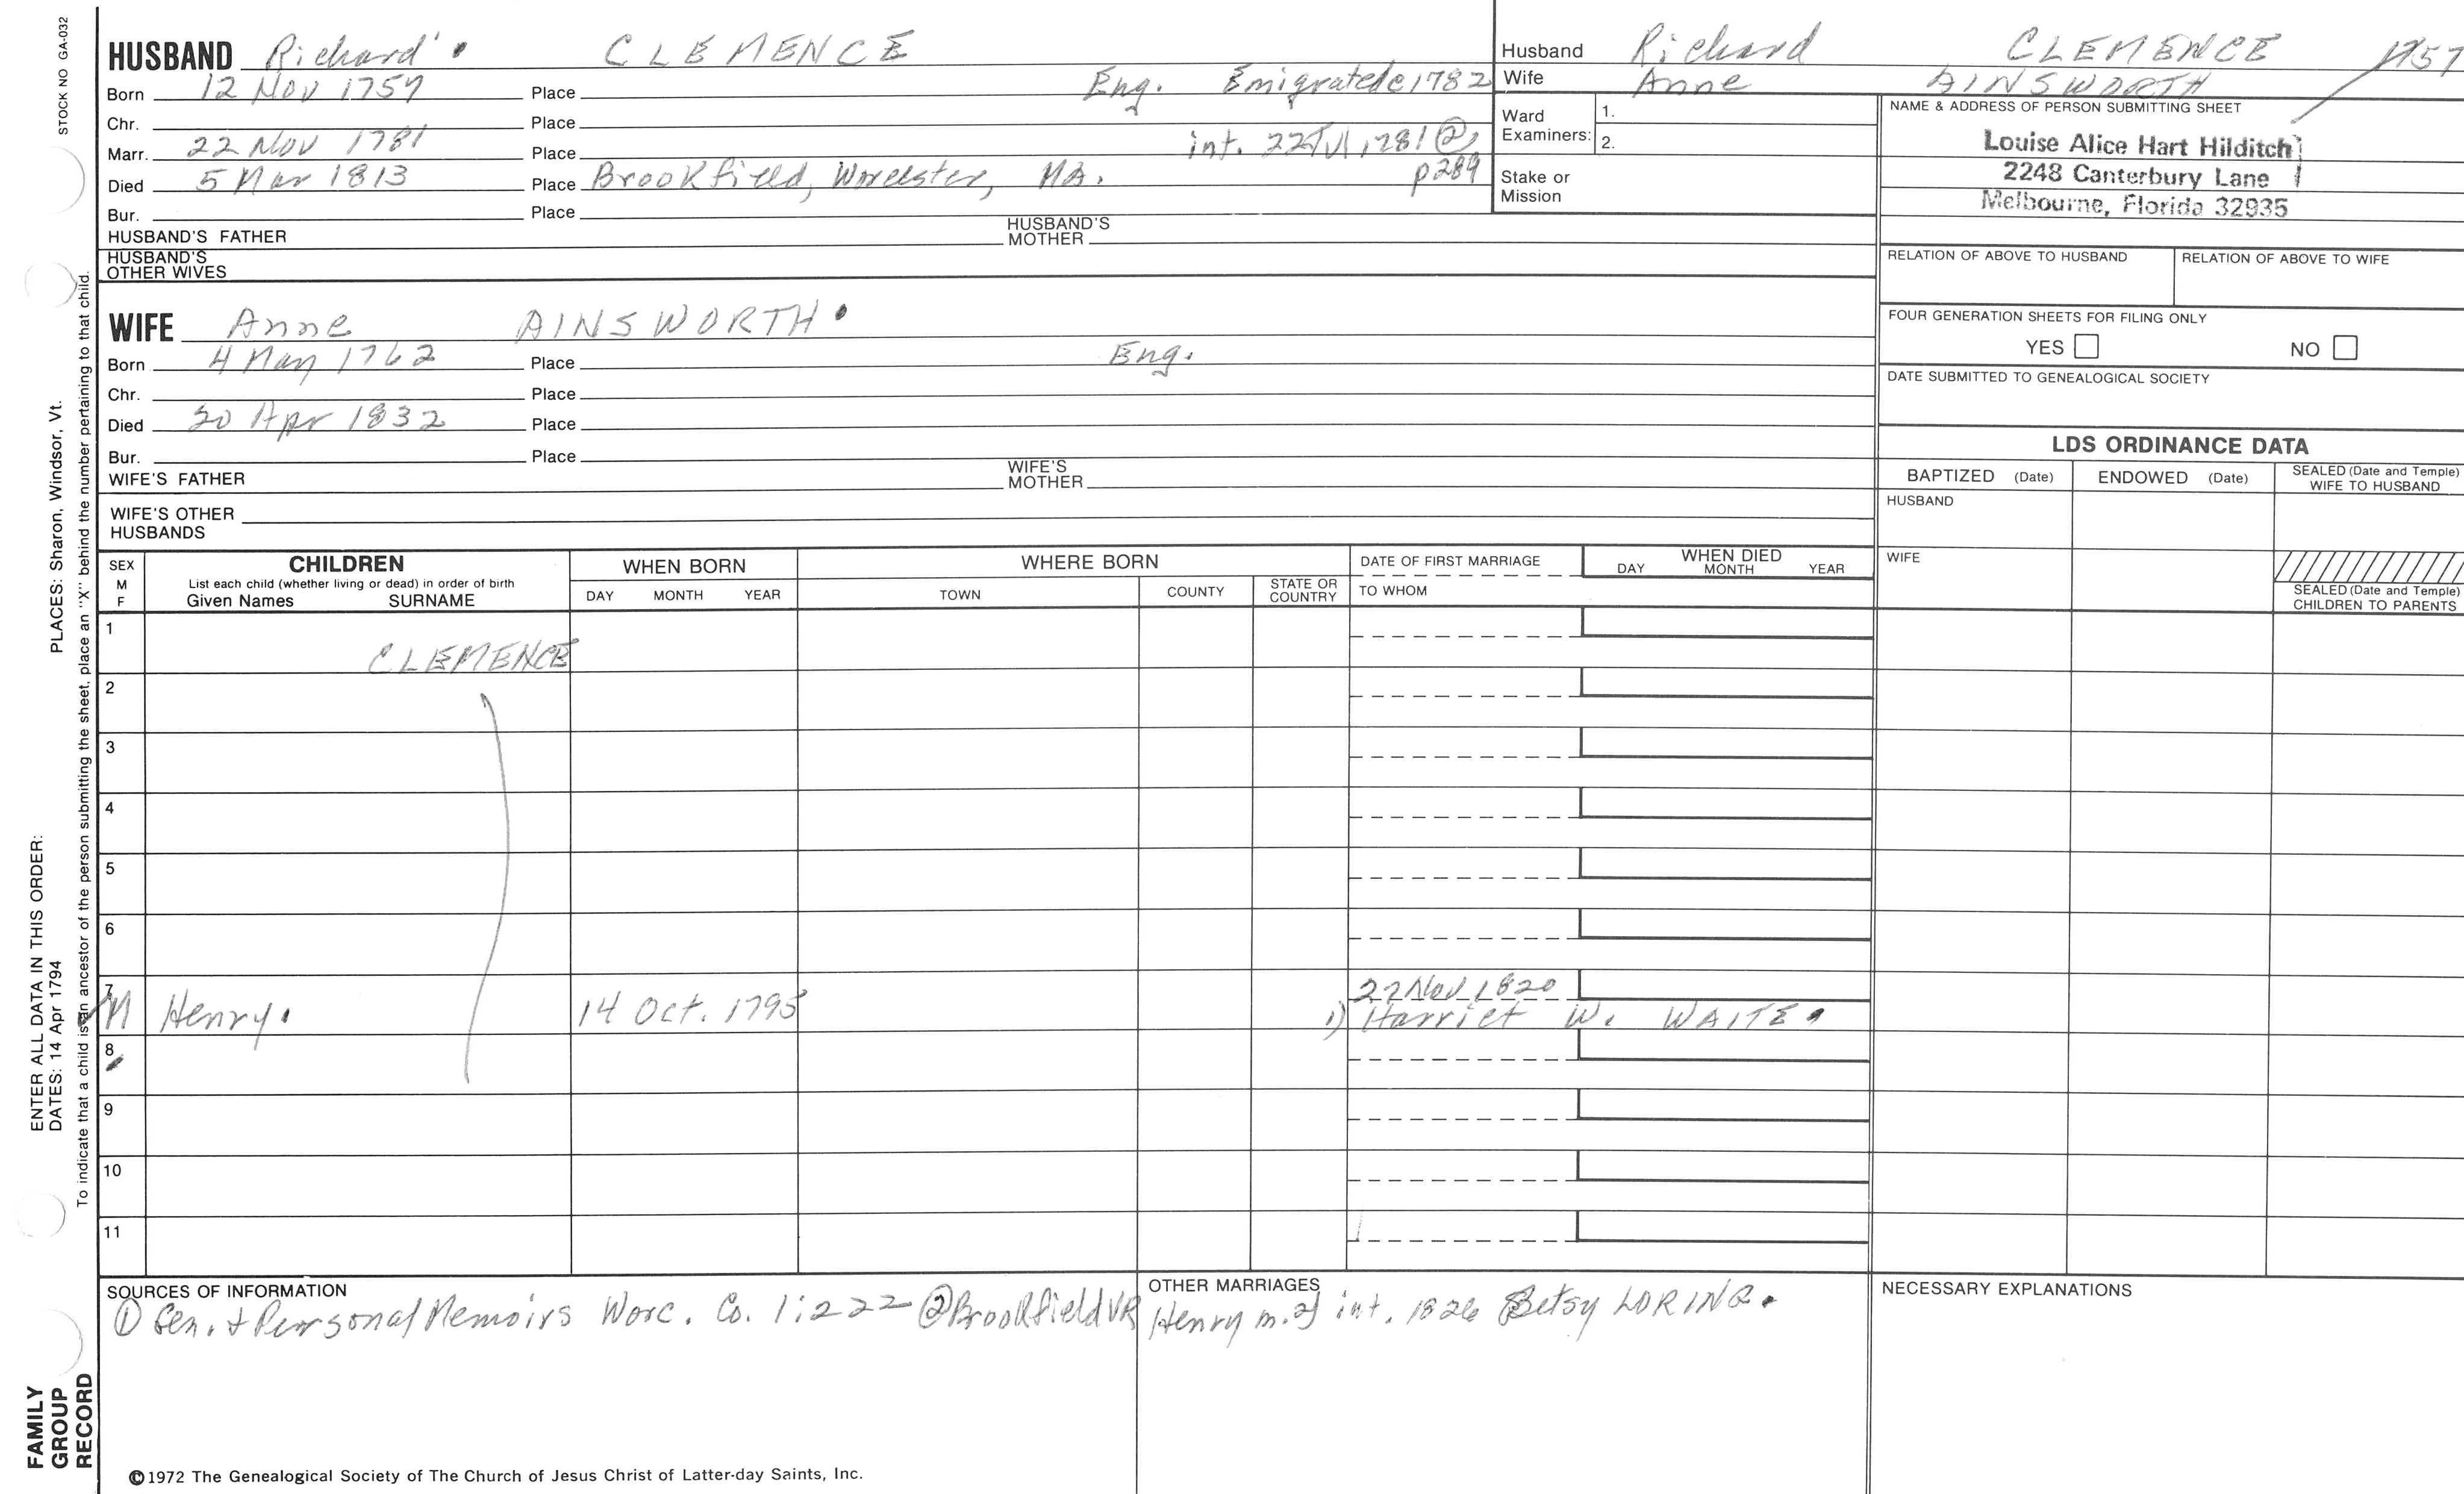 STOCK NO GA-032
PLACES: Sharon, Windsor, Vt.
ENTER ALL DATA IN THIS ORDER:
DATES: 14 Apr 1794
To indicate that a child is an ancestor of the person submitting the sheet, place an "X" behind the number pertaining to that child.
FAMILY
GROUP
RECORD
HUSBAND Richard CLEMENCE
Born 12 Nov 1757 Place Eng. Emigrated c 1782
Chr. Place
Marr. 22 Nov 1781 Place int. 22 Jul 1781 ②,
Died 5 Mar 1813 Place Brookfield, Worcester, MA. p289
Bur. Place
HUSBAND'S FATHER HUSBAND'S MOTHER
HUSBAND'S
OTHER WIVES
WIFE Anne AINSWORTH
Born 4 May 1762 Place Eng.
Chr. Place
Died Apr 1832 Place
Bur. Place
WIFE'S FATHER WIFE'S MOTHER
WIFE'S OTHER
HUSBANDS
Husband Richard CLEMENCE 1757
Wife Anne AINSWORTH
Ward
Examiners: 1.
2.
Stake or
Mission
NAME & ADDRESS OF PERSON SUBMITTING SHEET
Louise Alice Hart Hilditch
2248 Canterbury Lane
Melbourne, Florida 32935
RELATION OF ABOVE TO HUSBAND RELATION OF ABOVE TO WIFE
FOUR GENERATION SHEETS FOR FILING ONLY
YES NO
DATE SUBMITTED TO GENEALOGICAL SOCIETY
LDS ORDINANCE DATA
BAPTIZED (Date) ENDOWED (Date) SEALED (Date and Temple)
WIFE TO HUSBAND
HUSBAND
WIFE
SEALED (Date and Temple)
CHILDREN TO PARENTS
SEX
M
F
CHILDREN
List each child (whether living or dead) in order of birth
Given Names SURNAME
WHEN BORN
DAY MONTH YEAR
WHERE BORN
TOWN COUNTY STATE OR COUNTRY
DATE OF FIRST MARRIAGE
TO WHOM
WHEN DIED
DAY MONTH YEAR
1
CLEMENCE
2
3
4
5
6
7 22 Nov 1820
M Henry. 14 Oct. 1795 1) Harriet W. WAITE
8
9
10
11
SOURCES OF INFORMATION
① Gen. & Personal Memoirs Worc. Co. 1:222 ② Brookfield VR
OTHER MARRIAGES
Henry m. 2) int. 1826 Betsy LORING
NECESSARY EXPLANATIONS
©1972 The Genealogical Society of The Church of Jesus Christ of Latter-day Saints, Inc.